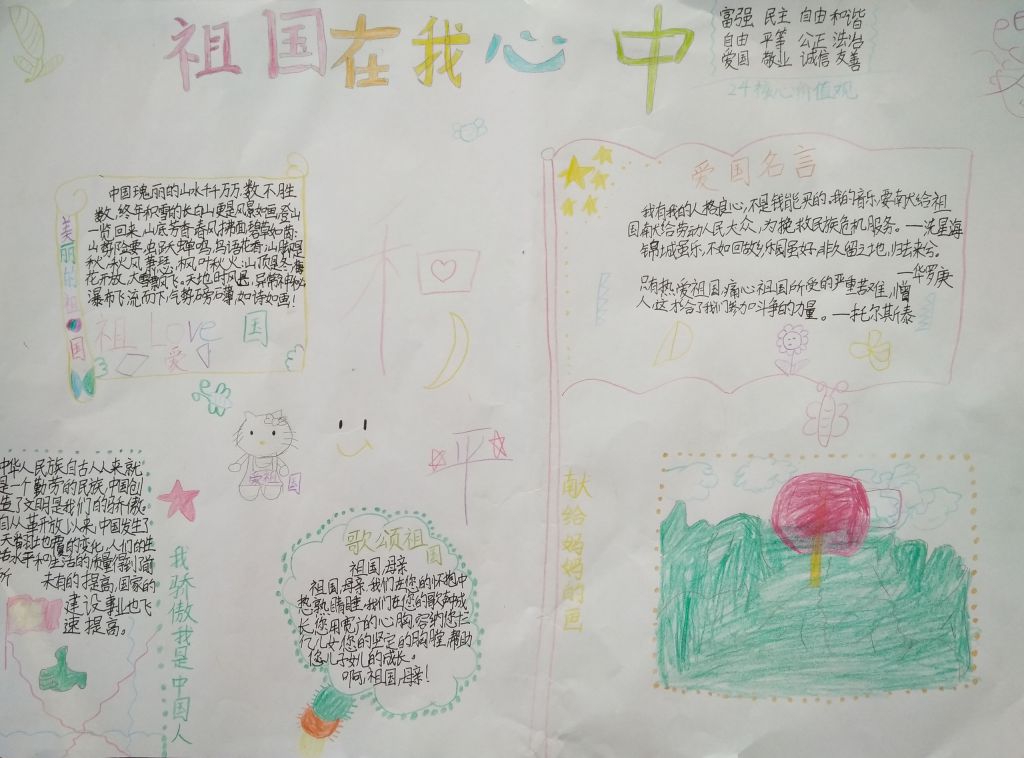 祖国在我心中
富强 民主 自由和谐
自由 平等 公正 法治
爱国 敬业 诚信 友善
24核心价值观
美丽的祖国
中国瑰丽的山水千千万万,数不胜
数,终年积雪的长白山更是风景如画,登山
一览回来,山底芳香,春风拂面,碧草如茵;
花开放,大雪飘飞。天地时风
瀑布飞流而下,气势磅礴,如诗如画!
祖 Love 国
爱
和
平
爱国名言
我有我的人格良心,不是钱能买的,我的音乐,要南犬给祖
国,南犬给劳动人民大众,为挽救民族危机服务。—冼星海
锦城虽乐,不如回故乡;乐园虽好,非久留之地,归去来兮。
—华罗庚
只有热爱祖国,痛心祖国所受的严重苦难,憎
人,这才给了我们努力斗争的力量。—托尔斯泰
爱祖国
中华人民族自古人人来就
是一个勤劳的民族,中国创
造了文明是我们的骄傲。
自从革开放以来,中国发生了
天翻地覆的变化,人们的生
活水平和生活的质量得到前
所 未有的提高,国家的
建设事业也飞
速提高。
我骄傲我是中国人
歌颂祖国
祖国,母亲
祖国,母亲,我们在您的怀抱中
熟睡,我们在您的歌声中成
长,您用宽广的心胸,容纳您
亿儿女,您的坚定的胸膛,帮助
您儿子女儿的成长。
啊,祖国,母亲!
献给妈妈的画